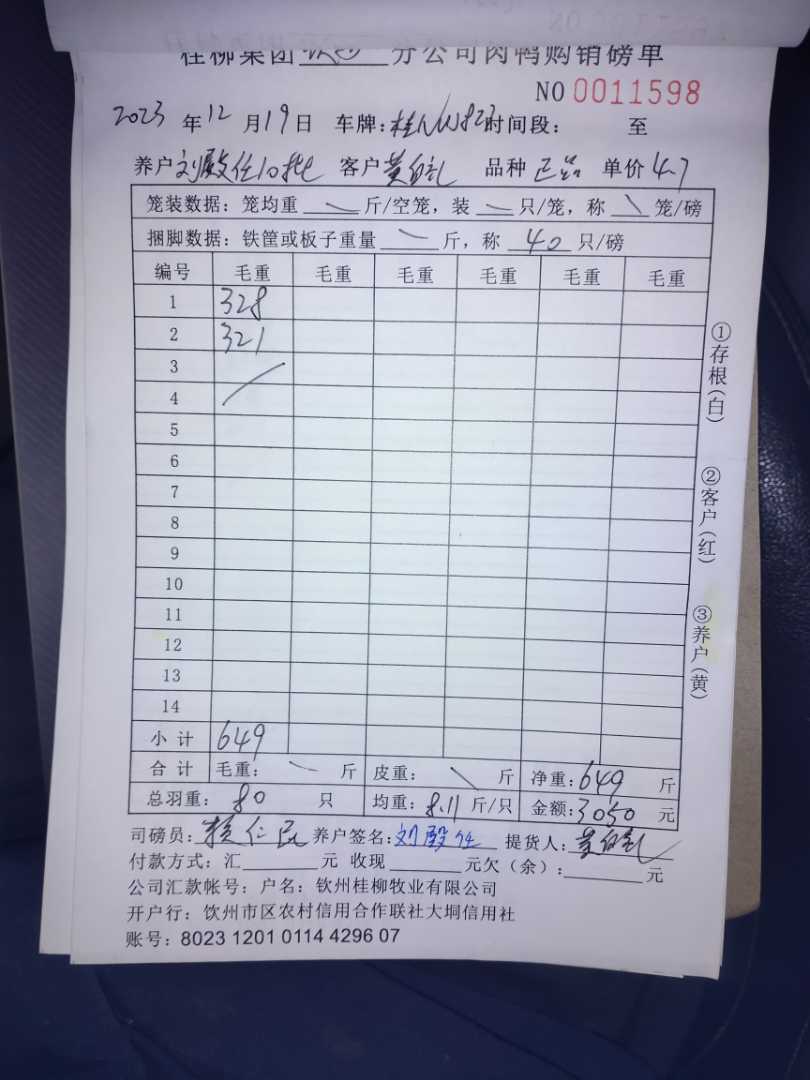 桂柳集团 钦州 分公司肉鸭购销磅单
NO 0011598
2023 年 12 月 19 日 车牌: 桂N 823 时间段: 至
养户 刘殿任10批 客户 黄 品种 正品 单价 4.7
笼装数据: 笼均重 斤/空笼, 装 只/笼, 称 笼/磅
捆脚数据: 铁筐或板子重量 斤, 称 40 只/磅
编号 毛重 毛重 毛重 毛重 毛重 毛重
1 328
2 321
3
4
5
6
7
8
9
10
11
12
13
14
小计 649
合计 毛重: 斤 皮重: 斤 净重: 649 斤
总羽重: 80 只 均重: 8.11 斤/只 金额: 3050 元
司磅员: 仁民 养户签名: 刘殿任 提货人: 黄
付款方式: 汇 元 收现 元欠(余): 元
公司汇款帐号: 户名: 钦州桂柳牧业有限公司
开户行: 饮州市区农村信用合作联社大垌信用社
账号: 8023 1201 0114 4296 07
①存根(白)
②客户(红)
③养户(黄)